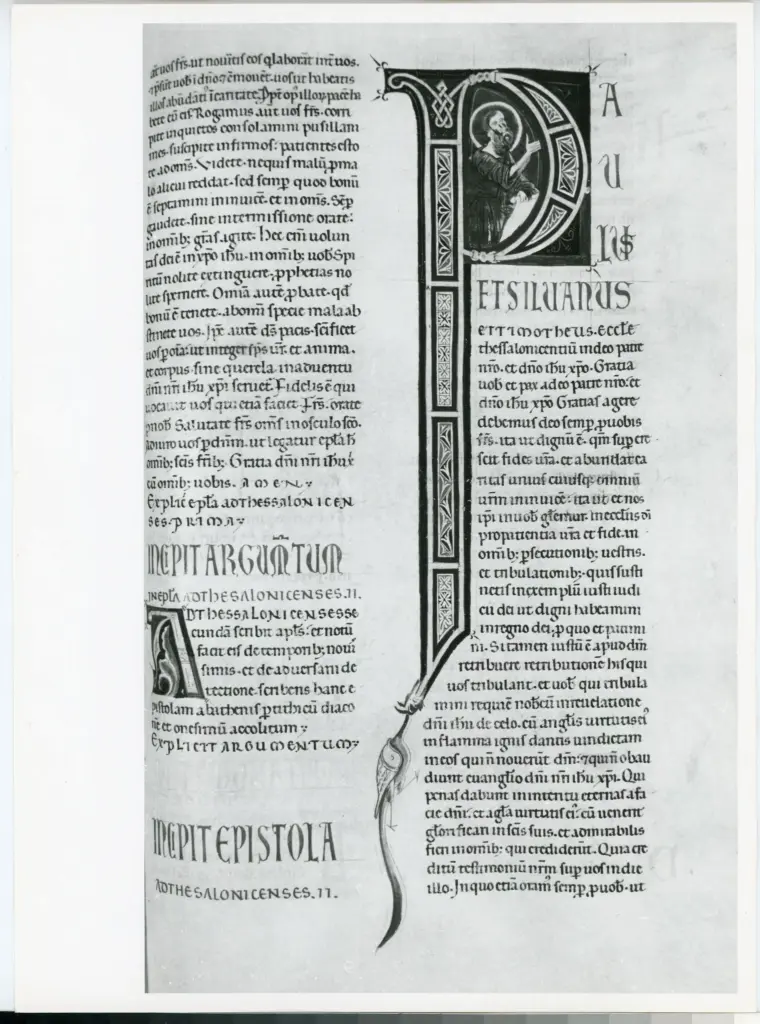 at uos frs. ut nouitis eos q laborant int uos.
et psūt uob i dn̄o ⁊ monēt uos ut habeatis
illos abūdāti i caritate. Ppt op illoꝝ pacē ha
bete cū eis. Rogamus aut uos frs. corri
pite inquietos consolamini pusillani
mes. suscipite infirmos: patientes esto
te ad om̄s. Videte nequis malū ꝓ ma
lo alicui reddat. sed semꝑ quod bonū
ē sectamini inuicē. et in om̄s. Sēꝑ
gaudete. sine intermissione orate:
in omib; grās agite. Hec enī uolun
tas dei ē in xp̄o ih̄u. in omib; uob. Spi
ritū nolite extinguere. ꝓphetias no
lite spernere. Omia autē ꝓbate. qd
bonū ē tenete. ab omi specie mala ab
stinete uos. Ipe autē ds pacis. scificet
uos ꝑ oīa: ut integer sp̄s ur̄. et anima.
et corpus. sine querela. in aduentu
dn̄i nr̄i ih̄u xp̄i seruet. Fidelis ē qui
uocauit uos qui etiā faciet. Frs. orate
ꝓ nob. Salutate frs om̄s in osculo sco.
Adiuro uos ꝑ dnm̄. ut legatur epl̄a h̄
omib; scis frib;. Gratia dn̄i nr̄i ih̄u x
cū omib; uobis. AMEN.
Explic epl̄a ad THESSALONICEN
SES. PRIMA.
INCIPIT ARGUMTUM
IN EPLA ADTHESALONICENSES. II.
ADTHESSALONICENSES SE
cundā scribit apl̄s: et notū
facit eis de temporib; noui
ssimis. et de aduersarii de
iectione. scribens hanc e
pistolam ab athenis ꝑ tithicū diaco
nē et onesimū accolitum.
EXPLICIT ARGUMENTUM.
INCIPIT EPISTOLA
ADTHESALONICENSES. II.
PAULUS
ET SILUANUS
ET TIMOTHEUS. ECCLE
thessalonicentiū in deo patre
nr̄o. et dn̄o ih̄u xp̄o. Gratia
uob et pax a deo patre nr̄o. et
dn̄o ih̄u xp̄o. Gratias agere
debemus deo semꝑ ꝓ uobis
frs. ita ut dignū ē. qm̄ suꝑ cre
scit fides ur̄a. et abundat ca
ritas unius cuiusq; omniū
ur̄m inuicē: ita ut et nos
ipi in uob gl̄emur. in eccl̄iis di
pro patientia ur̄a et fide. in
omib; ꝑsecutionib; uestris.
et tribulationib;. quis susti
netis in exemplū iusti iudi
cii dei ut digni habeamini
in regno dei. ꝓ quo et patimi
ni. Si tamen iustū ē apud dm̄
retribuere retributionē his qui
uos tribulant. et uob qui tribula
mini requiē nobcū in reuelatione
dn̄i ih̄u de celo. cū anglis uirtutis ei
in flamma ignis dantis uindictam
in eos qui n̄ nouerūt dm̄: ⁊ qui n̄ obau
diunt euanglio dn̄i nr̄i ih̄u xp̄i. Qui
penas dabunt in interitu eternas a fa
cie dn̄i. et a gl̄a uirtutis ei: cū uenerit
glorificari in scis suis. et admirabilis
fieri in omib; qui crediderūt. Quia cre
ditū testimoniū nr̄m suꝑ uos in die
illo. In quo etiā oram semꝑ ꝓ uob. ut